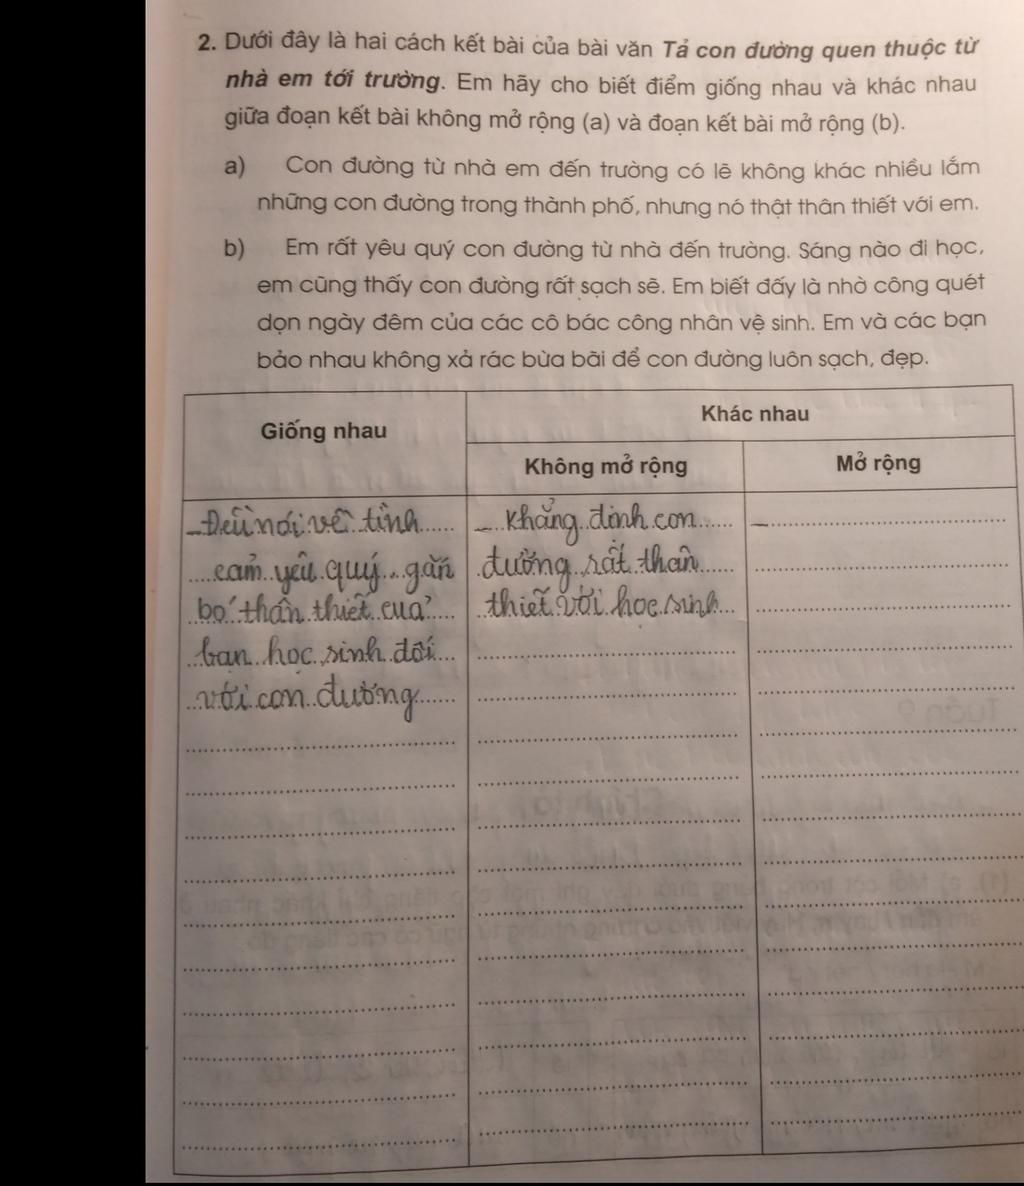 2. Dưới đây là hai cách kết bài của bài văn Tả con đường quen thuộc từ
nhà em tới trường. Em hãy cho biết điểm giống nhau và khác nhau
giữa đoạn kết bài không mở rộng (a) và đoạn kết bài mở rộng (b).
a) Con đường từ nhà em đến trường có lẽ không khác nhiều lắm
những con đường trong thành phố, nhưng nó thật thân thiết với em.
b) Em rất yêu quý con đường từ nhà đến trường. Sáng nào đi học,
em cũng thấy con đường rất sạch sẽ. Em biết đấy là nhờ công quét
dọn ngày đêm của các cô bác công nhân vệ sinh. Em và các bạn
bảo nhau không xả rác bừa bãi để con đường luôn sạch, đẹp.
Giống nhau
Khác nhau
Không mở rộng
Mở rộng
- Đều nói về tình
cảm yêu quý, gắn
bó thân thiết của
bạn học sinh đối
với con đường
- Khẳng định con
đường rất thân
thiết với học sinh
-